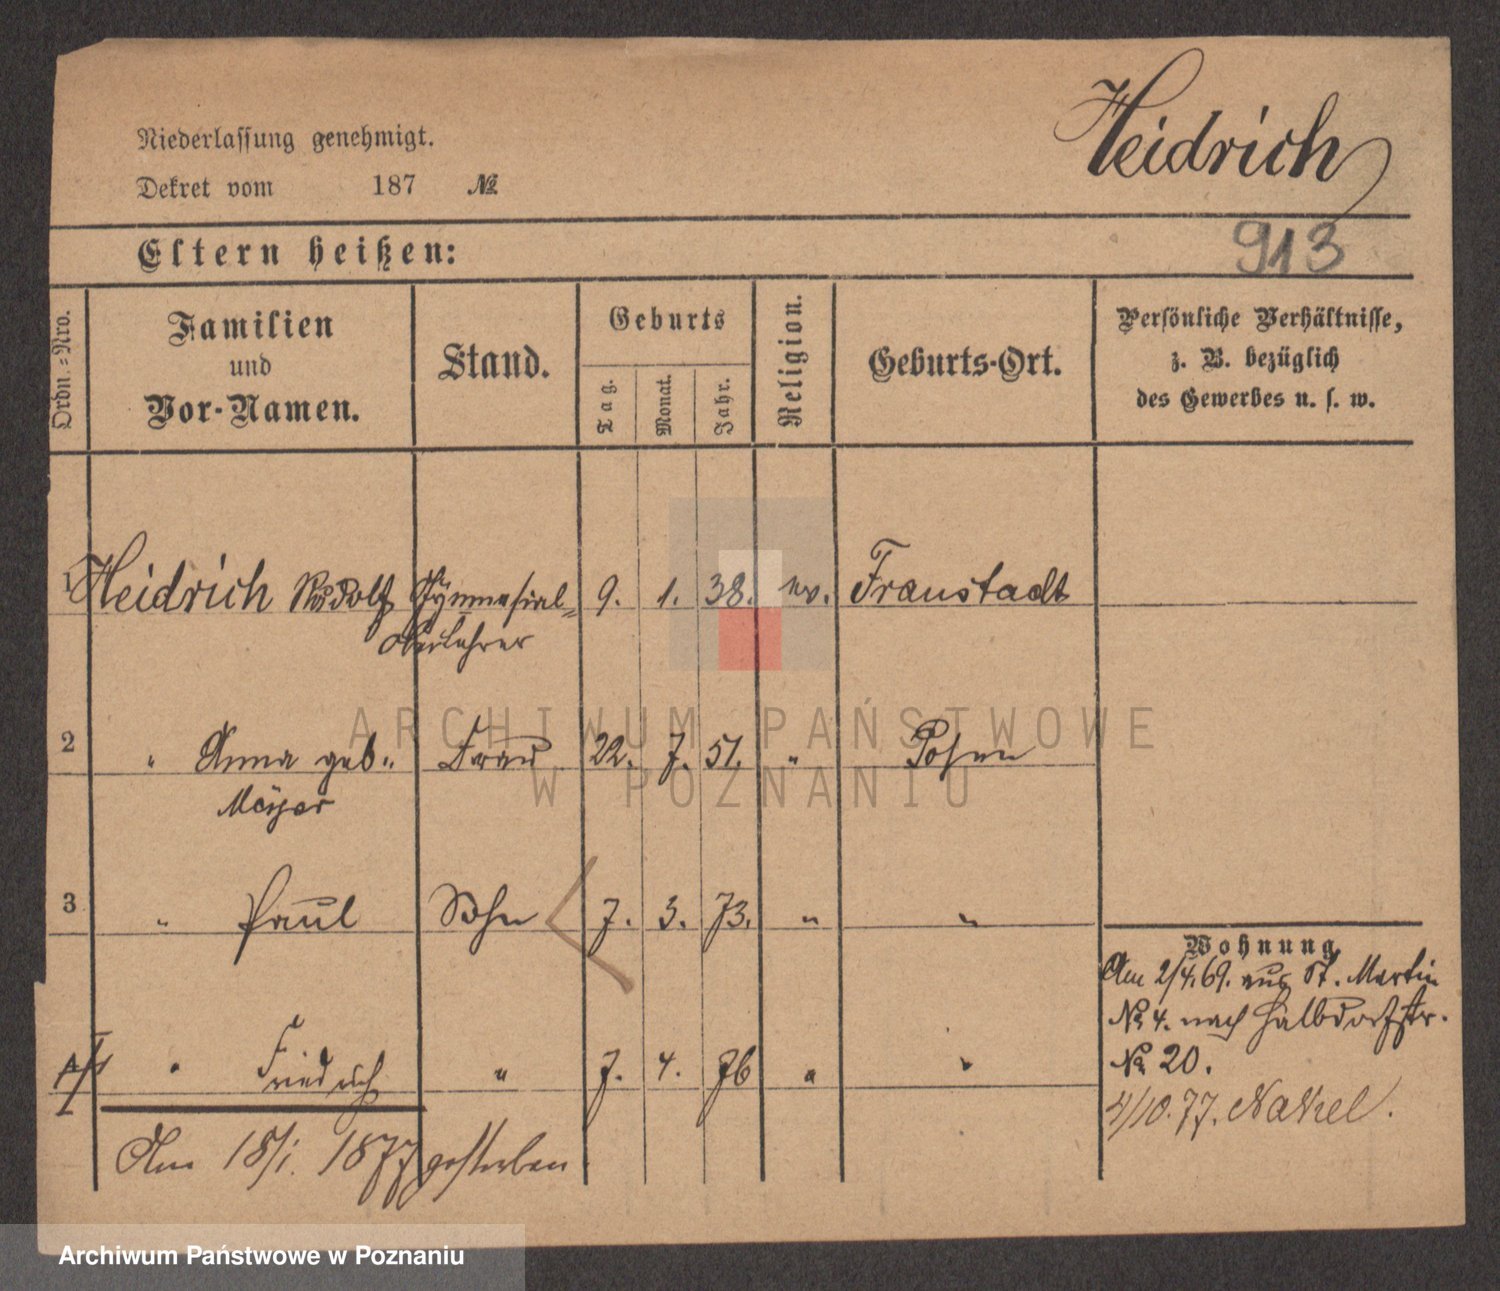 Heidrich
Niederlassung genehmigt.
Dekret vom 187 №
Eltern heißen:
913
Ordn.=Nro.
Familien
und
Vor-Namen.
Stand.
Geburts
Tag.
Monat.
Jahr.
Religion.
Geburts-Ort.
Persönliche Verhältnisse,
z. B. bezüglich
des Gewerbes u. s. w.
1 Heidrich Rudolf Gymnasial= 9. 1. 38. ev. Fraustadt
Oberlehrer
2 " Anna geb. Frau 22. 7. 51. " Posen
Meyer
3 " Paul Sohn 7. 3. 73. " "
Wohnung
Am 2/4.69. aus St. Martin
№ 4. nach Halbdorfstr.
№ 20.
4/10.77. Nakel.
4 " Friedrich " 7. 4. 76 " "
Am 18/1. 1877 gestorben
ARCHIWUM PAŃSTWOWE
W POZNANIU
Archiwum Państwowe w Poznaniu